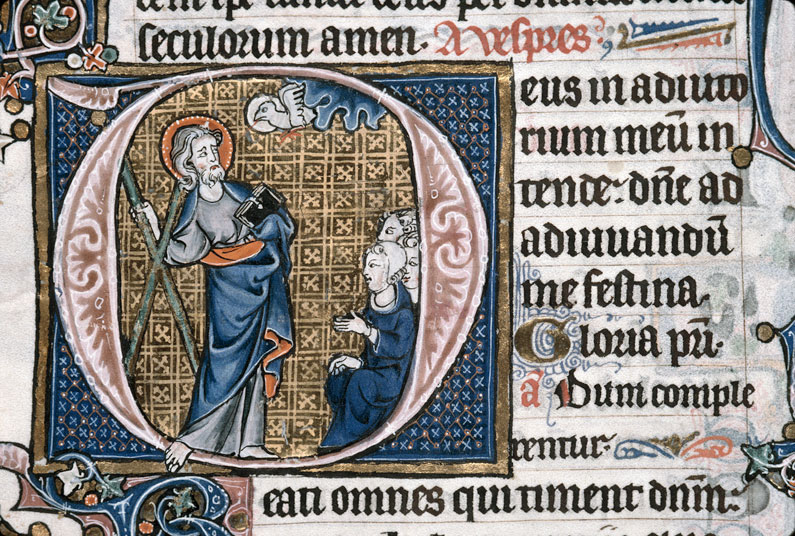 seculorum amen. A vespres
eus in adiuto
rium meū in
tende: dn̄e ad
adiuuandū
me festina.
Gloria pr̄i.
a᷑ Dum comple
rentur
eati omnes qui timent dnm̄: